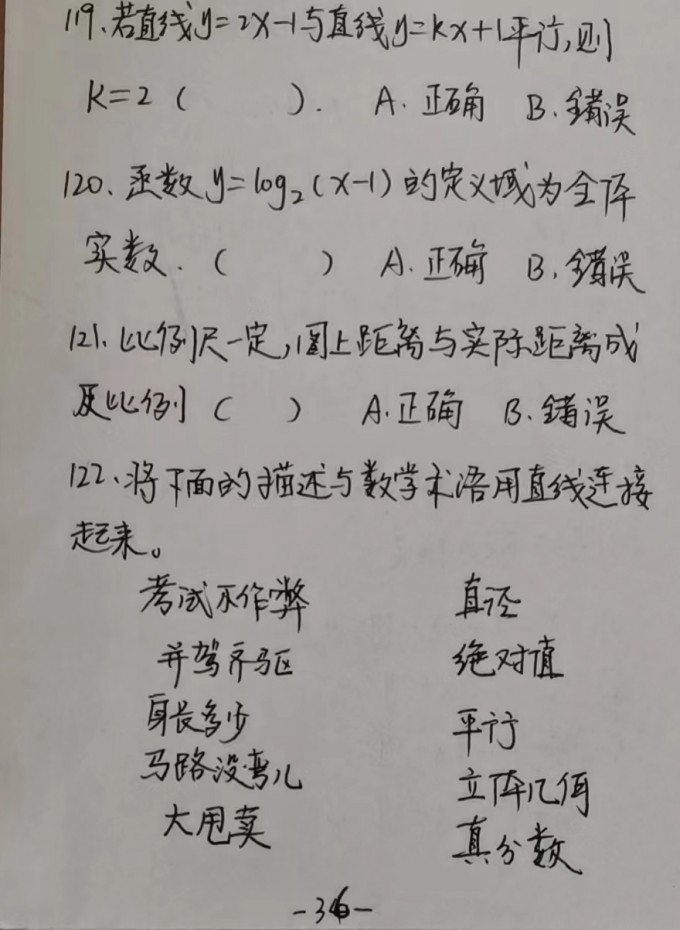 119、若直线y=2x-1与直线y=kx+1平行,则
k=2（　　）. A. 正确 B. 错误
120、函数y=log₂(x-1)的定义域为全体
实数.（　　） A. 正确 B. 错误
121. 比例尺一定,图上距离与实际距离成
反比例（　　） A. 正确 B. 错误
122、将下面的描述与数学术语用直线连接
起来。
考试不作弊 直径
并驾齐驱 绝对值
身长多少 平行
马路没弯儿 立体几何
大甩卖 真分数
-36-